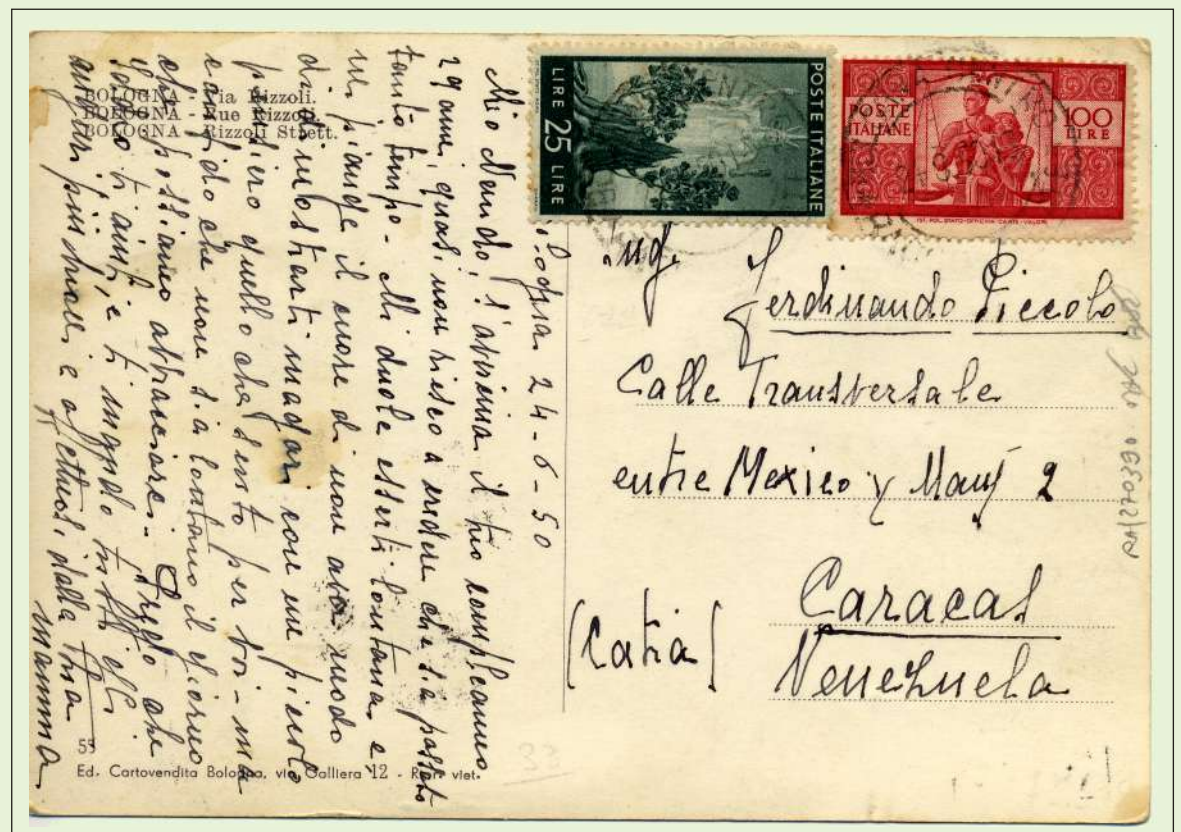 BOLOGNA - Via Rizzoli.
BOLOGNA - Rue Rizzoli.
BOLOGNA - Rizzoli Strett.
POSTE ITALIANE
LIRE 25 LIRE
POSTE ITALIANE
100 LIRE
IST. POL. STATO-OFFICINA CARTE-VALORI
24-6-50
Mio Nando, s'avvicina il tuo compleanno
29 anni, quasi non riesco a credere che sia passato
tanto tempo. Mi duole esserti lontana e
mi piange il cuore di non aver modo
di dimostrarti magari con un piccolo
pensiero quello che sento per te - ma
confido che non sia lontano il giorno
che possiamo abbracciarci. Prego che
Iddio ti aiuti, e ti mando tutti gli
auguri più belli e affettuosi dalla tua
mamma
Ing.
Ferdinando Piccolo
Calle Transversale
entre Mexico y Mauj 2
Caracas
(Catia)
Venezuela
55
Ed. Cartovendita Bologna, via Galliera 12 - viet.